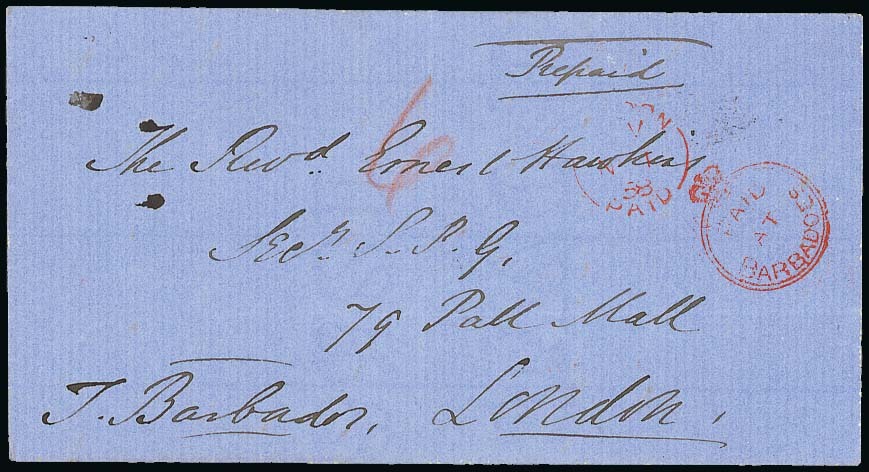 Prepaid
6
The Revd. Ernest Hawkins
Secy. S. P. G.
79 Pall Mall
London.
T. Barbados.
PAID
58
PAID
AT
BARBADOES